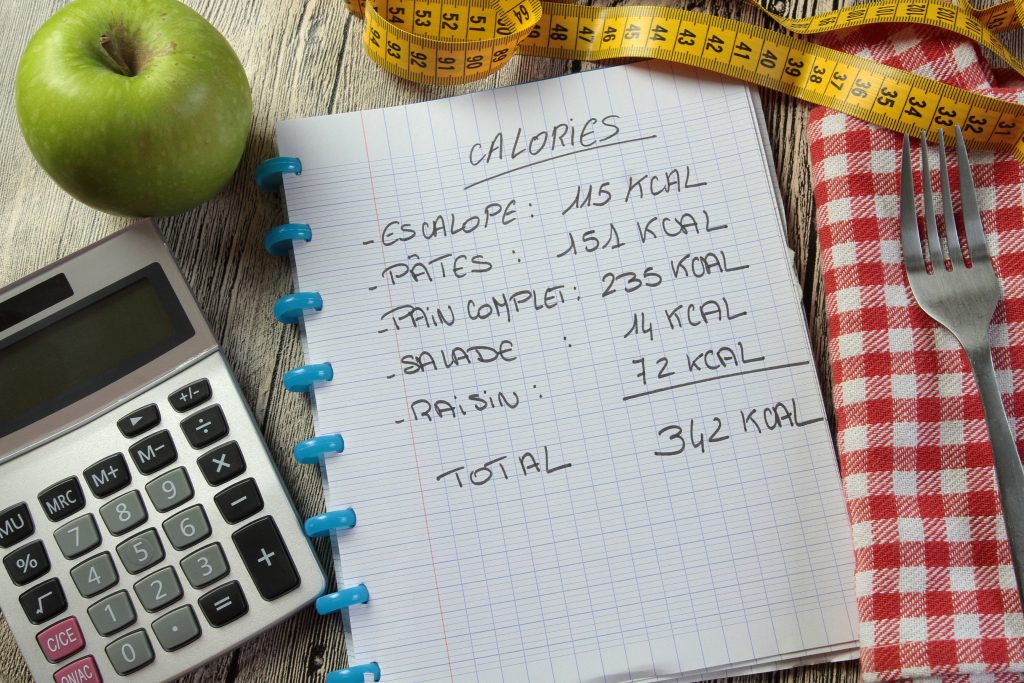 54 53 52 51
94 93 92 91 90
46 45 44 43 42 41 40 39 38 37 36 35 34 33 32 31
CALORIES
- ESCALOPE : 115 KCAL
- PÂTES : 151 KCAL
- PAIN COMPLET : 235 KCAL
- SALADE : 14 KCAL
- RAISIN : 72 KCAL
TOTAL 342 KCAL
▶ +/-
MU MRC M+ M- ÷
% 7 8 9 ×
√ 4 5 6 -
C/CE 1 2 3 +
ON/AC 0 · =